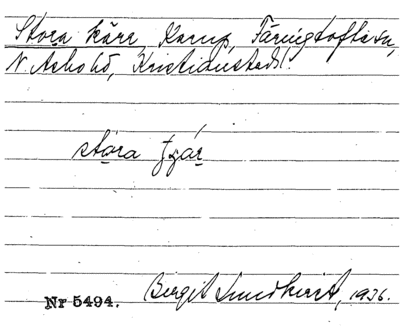 Stora kärr, Kamp, Färingtofta sn,
N. Åsbo hd, Kristianstads l.
stóra tjár
Nr 5494. Birgit Lundkvist, 1936.